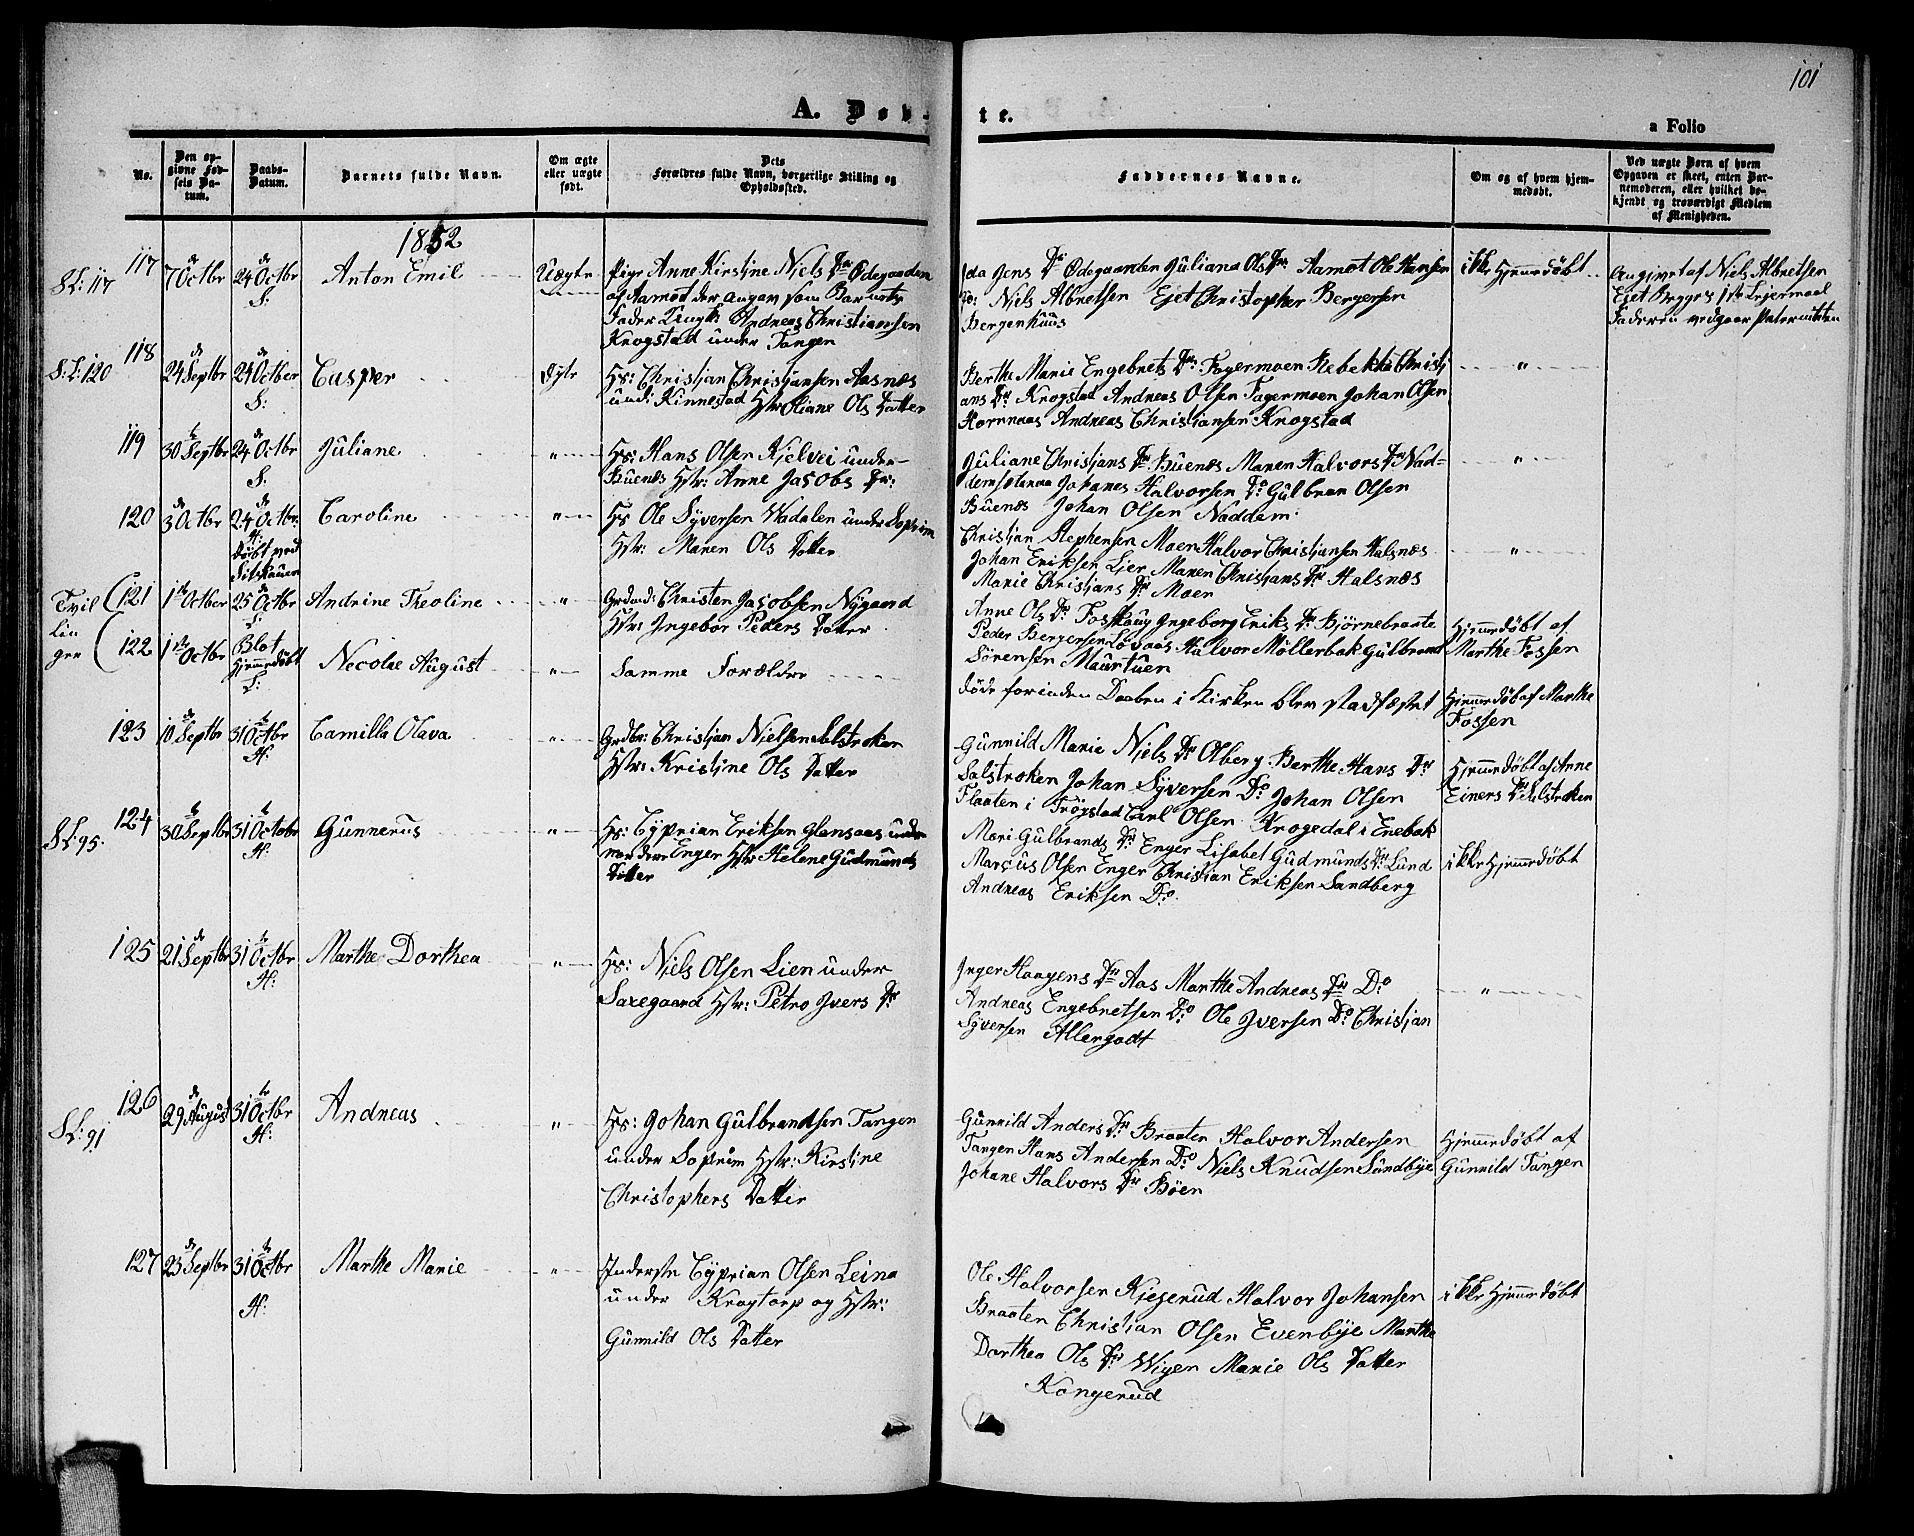 101
A. Døb-
te.
a Folio
No.
Den op-
givne Fød-
sels Da-
tum.
Daabs-
Datum.
Barnets fulde Navn.
Om ægte
eller uægte
født.
Dets
Forældres fulde Navn, borgerlige Stilling og
Opholdssted.
Faddernes Navne.
Om og af hvem hjem-
medøbt.
Ved uægte Børn af hvem
Opgaven er skeet, enten Bar-
nemoderen, eller hvilket be-
kjendt og troværdigt Medlem
af Menigheden.
1852
S.L: 117
117
7 Octbr
24 Octbr
S:
Anton Emil
Uægte
Pige Anne Kirstine Niels Dr Ødegaarden
af Aamot der angav som Barnets
Fader Ungk: Andreas Christiansen
Krogstad under Tangen
Ida Jens Dr Ødegaarden Juliana Ols Dr Aamot Ole Hansen
Do: Niels Albretsen Ejet Christopher Bergersen
Bergenhuus
ikke Hjemmedøbt
Angivet af Niels Albretsen
Ejet Begges 1ste Lejermaal
Faderen vedgaar Paterniteten
S.L: 120
118
24 Septbr
24 October
S:
Casper
Ægte
Hs: Christjan Christjansen Aasnæs
und: Kinnestad Hstr Oliane Ols Datter
Berthe Marie Engebrets Dr: Fagermoen Rebekka Christj
ans Dr Krogstad Andreas Olsen Fagermoen Johan Olsen
Hornnæs Andreas Christjansen Krogstad
"
119
30 Septbr
24 Octbr
S:
Juliane
"
Hs: Hans Olsen Kjelvei under
Buenæs Hstr: Anne Jacobs Dr:
Juliane Christjans Dr Buenæs Maren Halvors Dr Nad-
demstanna Johanes Halvorsen Do Gulbran Olsen
Buenæs Johan Olsen Naddem
"
120
3 Octbr
24 Octbr:
H:
døbt ved
Caroline
"
Hs Ole Syversen Vadalen under Soprim
Hstr: Maren Ols Datter
Christjan Stephensen Moer Halvor Christjansen Halsnæs
Johan Eriksen Lier Maren Christjans Dr Halsnæs
Marie Christjans Dr Moer
"
Tvil
lin
ger
121
1ste October
25 Octbr
S:
Andrine Theoline
"
Grdmd: Christen Jacobsen Nygaard
Hstr: Ingebor Peders Datter
Anne Ols Dr Fosshaug Ingeborg Eriks Dr Bjørnebraate
Peder Bergersen Lovaas Halvor Møllerbak Gulbrand
Sørensen Maurtuen
Hjemmedøbt af
Marthe Fossen
122
1ste Octbr
Blot
Hjemmedøbt
S:
Necolie August
"
Samme Forældre
døde forinden Daaben i Kirken blev stadfæstet
Hjemmedøbt af Marthe
Fossen
123
10 Septbr
31 Octbr
H:
Camilla Olava
"
Grdbr: Christjan Nielsen Salstroken
Hstr: Kristine Ols Datter
Gunnild Marie Niels Dr Olberg Berthe Hans Dr
Salstroken Johan Syversen Do Johan Olsen
Flaaten i Trøgstad Carl Olsen Krogedal i Enebak
Hjemmedøbt af Anne
Einers Dr Salstroken
S.L: 95.
124
30 Septbr
31 Octobr
H:
Gunnerus
"
Hs: Cyprian Eriksen Glansaas under
nordere Enger Hstr Helene Gudmunds
Datter
Mari Gulbrands Dr Enger Lisabet Gudmunds Dr Lund
Marcus Olsen Enger Christian Eriksen Sandberg
Andreas Eriksen Do
ikke Hjemmedøbt
125
21 Septbr
31 Octbr
H:
Marthe Dorthea
"
Hs: Niels Olsen Lien under
Saxegaard Hstr: Petro Ivers Dr
Inger Haagens Dr Aas Marthe Andreas Dr Do
Andreas Engebretsen Do Ole Iversen Do Christjan
Syversen Allergodt
"
S.L: 91
126
29 August
31 Octbr
H:
Andreas
"
Hs: Johan Gulbrandsen Tangen
under Soprim Hstr: Kirstine
Christophers Datter
Gunnild Anders Dr Braaten Halvor Andersen
Tangen Hans Andersen Do Niels Knudsen Sundbye
Johane Halvors Dr Böen
Hjemmedøbt af
Gunnild Tangen
127
23 Septbr
31 Octbr
H:
Marthe Marie
"
Inderste Cyprian Olsen Leina
under Krogtorp og Hstr:
Gunnild Ols Datter
Ole Halvorsen Kjegerud Halvor Johansen
Braaten Christian Olsen Evenbye Marthe
Dorthea Ols Dr Wiger Marie Ols Datter
Kongerud
ikke Hjemmedøbt